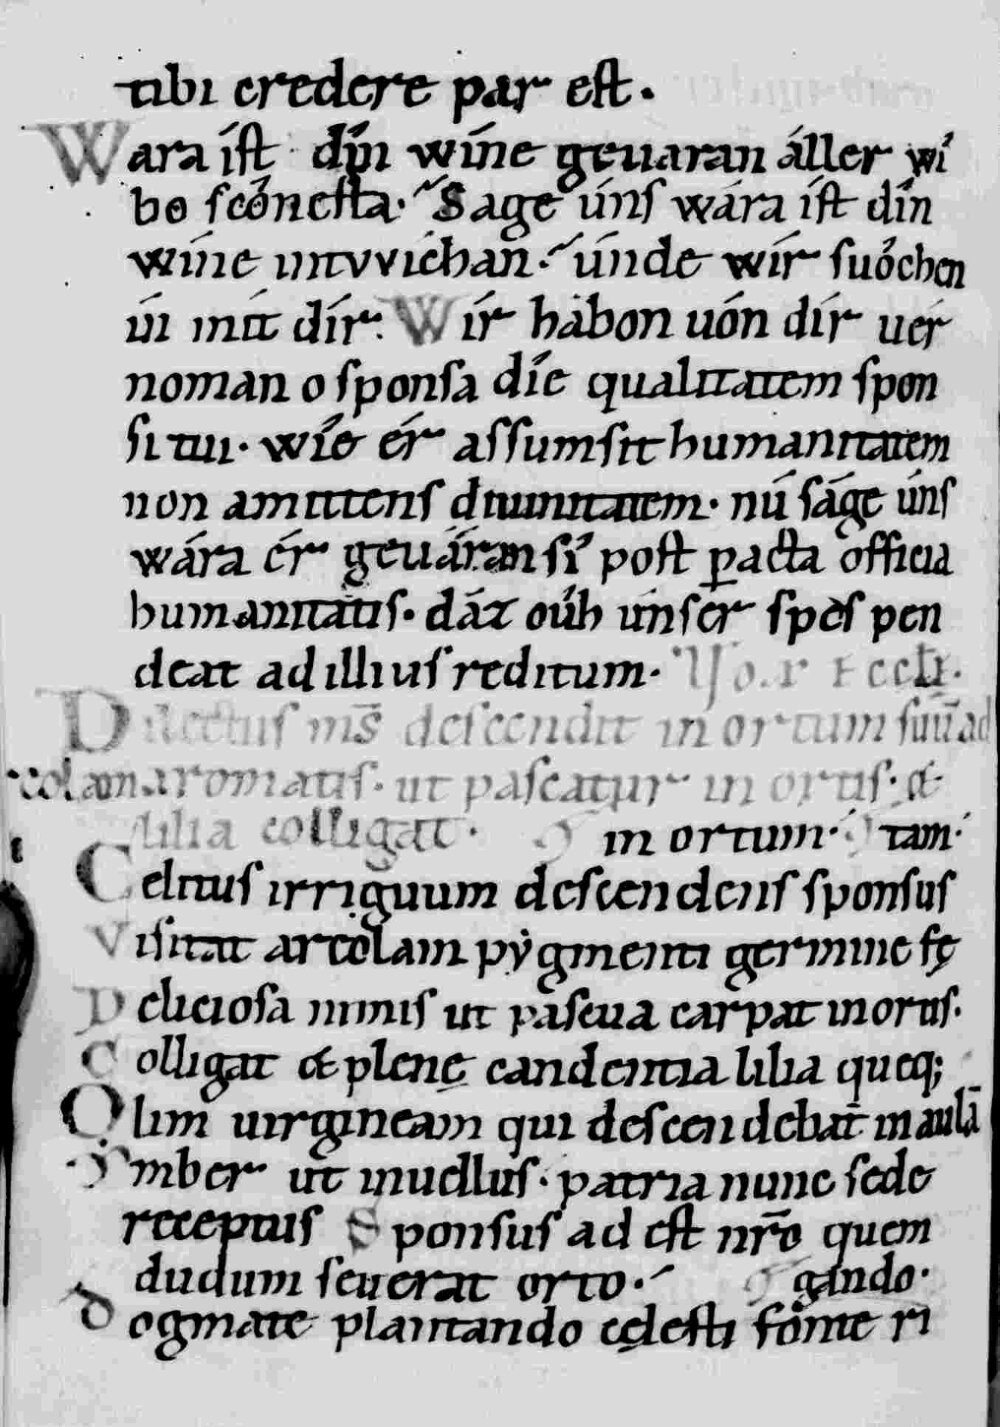 tibi credere par est.
Wara íst dín wíne geuaran áller wí
bo scónesta. Sage úns wára íst dín
wíne intvvichan. únde wír suóchen
ín mít dír. Wír hábon uón dír uer
noman o sponsa díe qualitatem spon
si tui. wío ér assumsit humanitatem
non amittens diuinitatem. nú ságe úns
wára ér geuáran sí post peracta officia
humanitatis. dáz oúh únser spes pen
deat ad illius reditum. Vox ęccłę.
Dilectus ms̄ descendit in ortum suū ad
areolam aromatis. ut pascatur in ortis. &
lilia colligat. in ortum. tam.
Celitus irriguum descendens sponsus
Visitat areolam pẏgmenti germine fę
Deliciosa nimis ut pascua carpat in ortis.
Colligat & plene candentia lilia queq;
Olim uirgineam qui descendebat in aulā
Imber ut in uellus. patria nunc sede
receptus Sponsus adest nr̄o quem
dudum seuerat orto. gando.
dogmate plantando cęlesti fonte ri